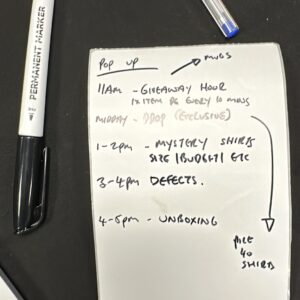 PERMANENT MARKER
POP UP
MUGS
11AM - GIVEAWAY HOUR
1x ITEM PG EVERY 10 MINS
MIDDAY - DROP (EXCLUSIVE)
1-2pm - MYSTERY SHIRTS
SIZE | BUDGET | ETC
3-4pm DEFECTS.
4-5pm - UNBOXING
40
SHIRTS